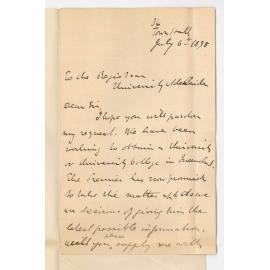 Town Hall
July 6th 1898
To the Registrar
University Adelaide
Dear Sir,
I hope you will pardon
my request. We have been
working to obtain a University
or University College in Queensland.
The Premier has now promised
to take the matter up & as we
are desirous of giving him the
latest possible information,
would you please supply me with